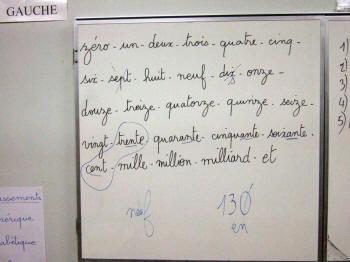 GAUCHE
zéro - un - deux - trois - quatre - cinq -
six - sept - huit - neuf - dix - onze -
douze - treize - quatorze - quinze - seize -
vingt - trente - quarante - cinquante - soixante -
cent - mille - million - milliard et
neuf 130
en
1)
2)
3)
4)
5)